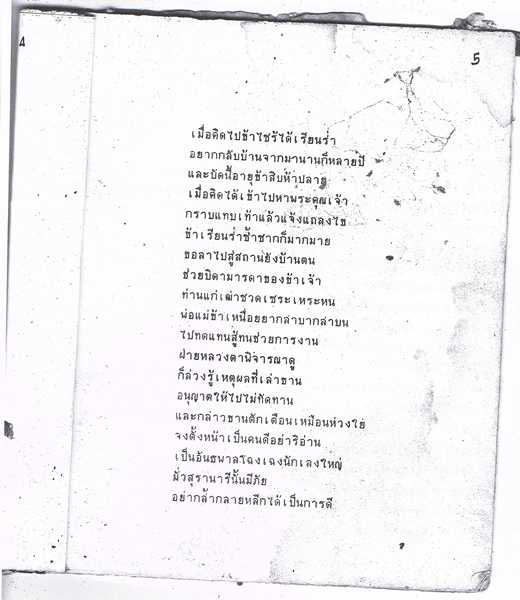 4
5
เมื่อคิดไปข้าไซร้ได้เรียนร่ำ
อยากกลับบ้านจากมานานก็หลายปี
และบัดนี้อายุข้าสิบห้าปลาย
เมื่อคิดได้เข้าไปหาพระคุณเจ้า
กราบแทบเท้าแล้วแจ้งแถลงไข
ข้าเรียนร่ำซ้ำซากก็มากมาย
ขอลาไปสู่สถานยังบ้านตน
ช่วยบิดามารดาของข้าเจ้า
ท่านแก่เฒ่าชวดเซระเหระหน
พ่อแม่ข้าเหนื่อยยากลำบากล้าบน
ไปทดแทนสู้ทนช่วยการงาน
ฝ่ายหลวงตาพิจารณาดู
ก็ล่วงรู้เหตุผลที่เล่าขาน
อนุญาตให้ไปไม่ทัดทาน
และกล่าวขานตักเตือนเหมือนห่วงใย
จงตั้งหน้าเป็นคนดีอย่าริอ่าน
เป็นอันธพาลโฉงเฉงนักเลงใหญ่
มั่วสุรานารีนั้นมีภัย
อย่ากล้ำกลายหลีกได้เป็นการดี